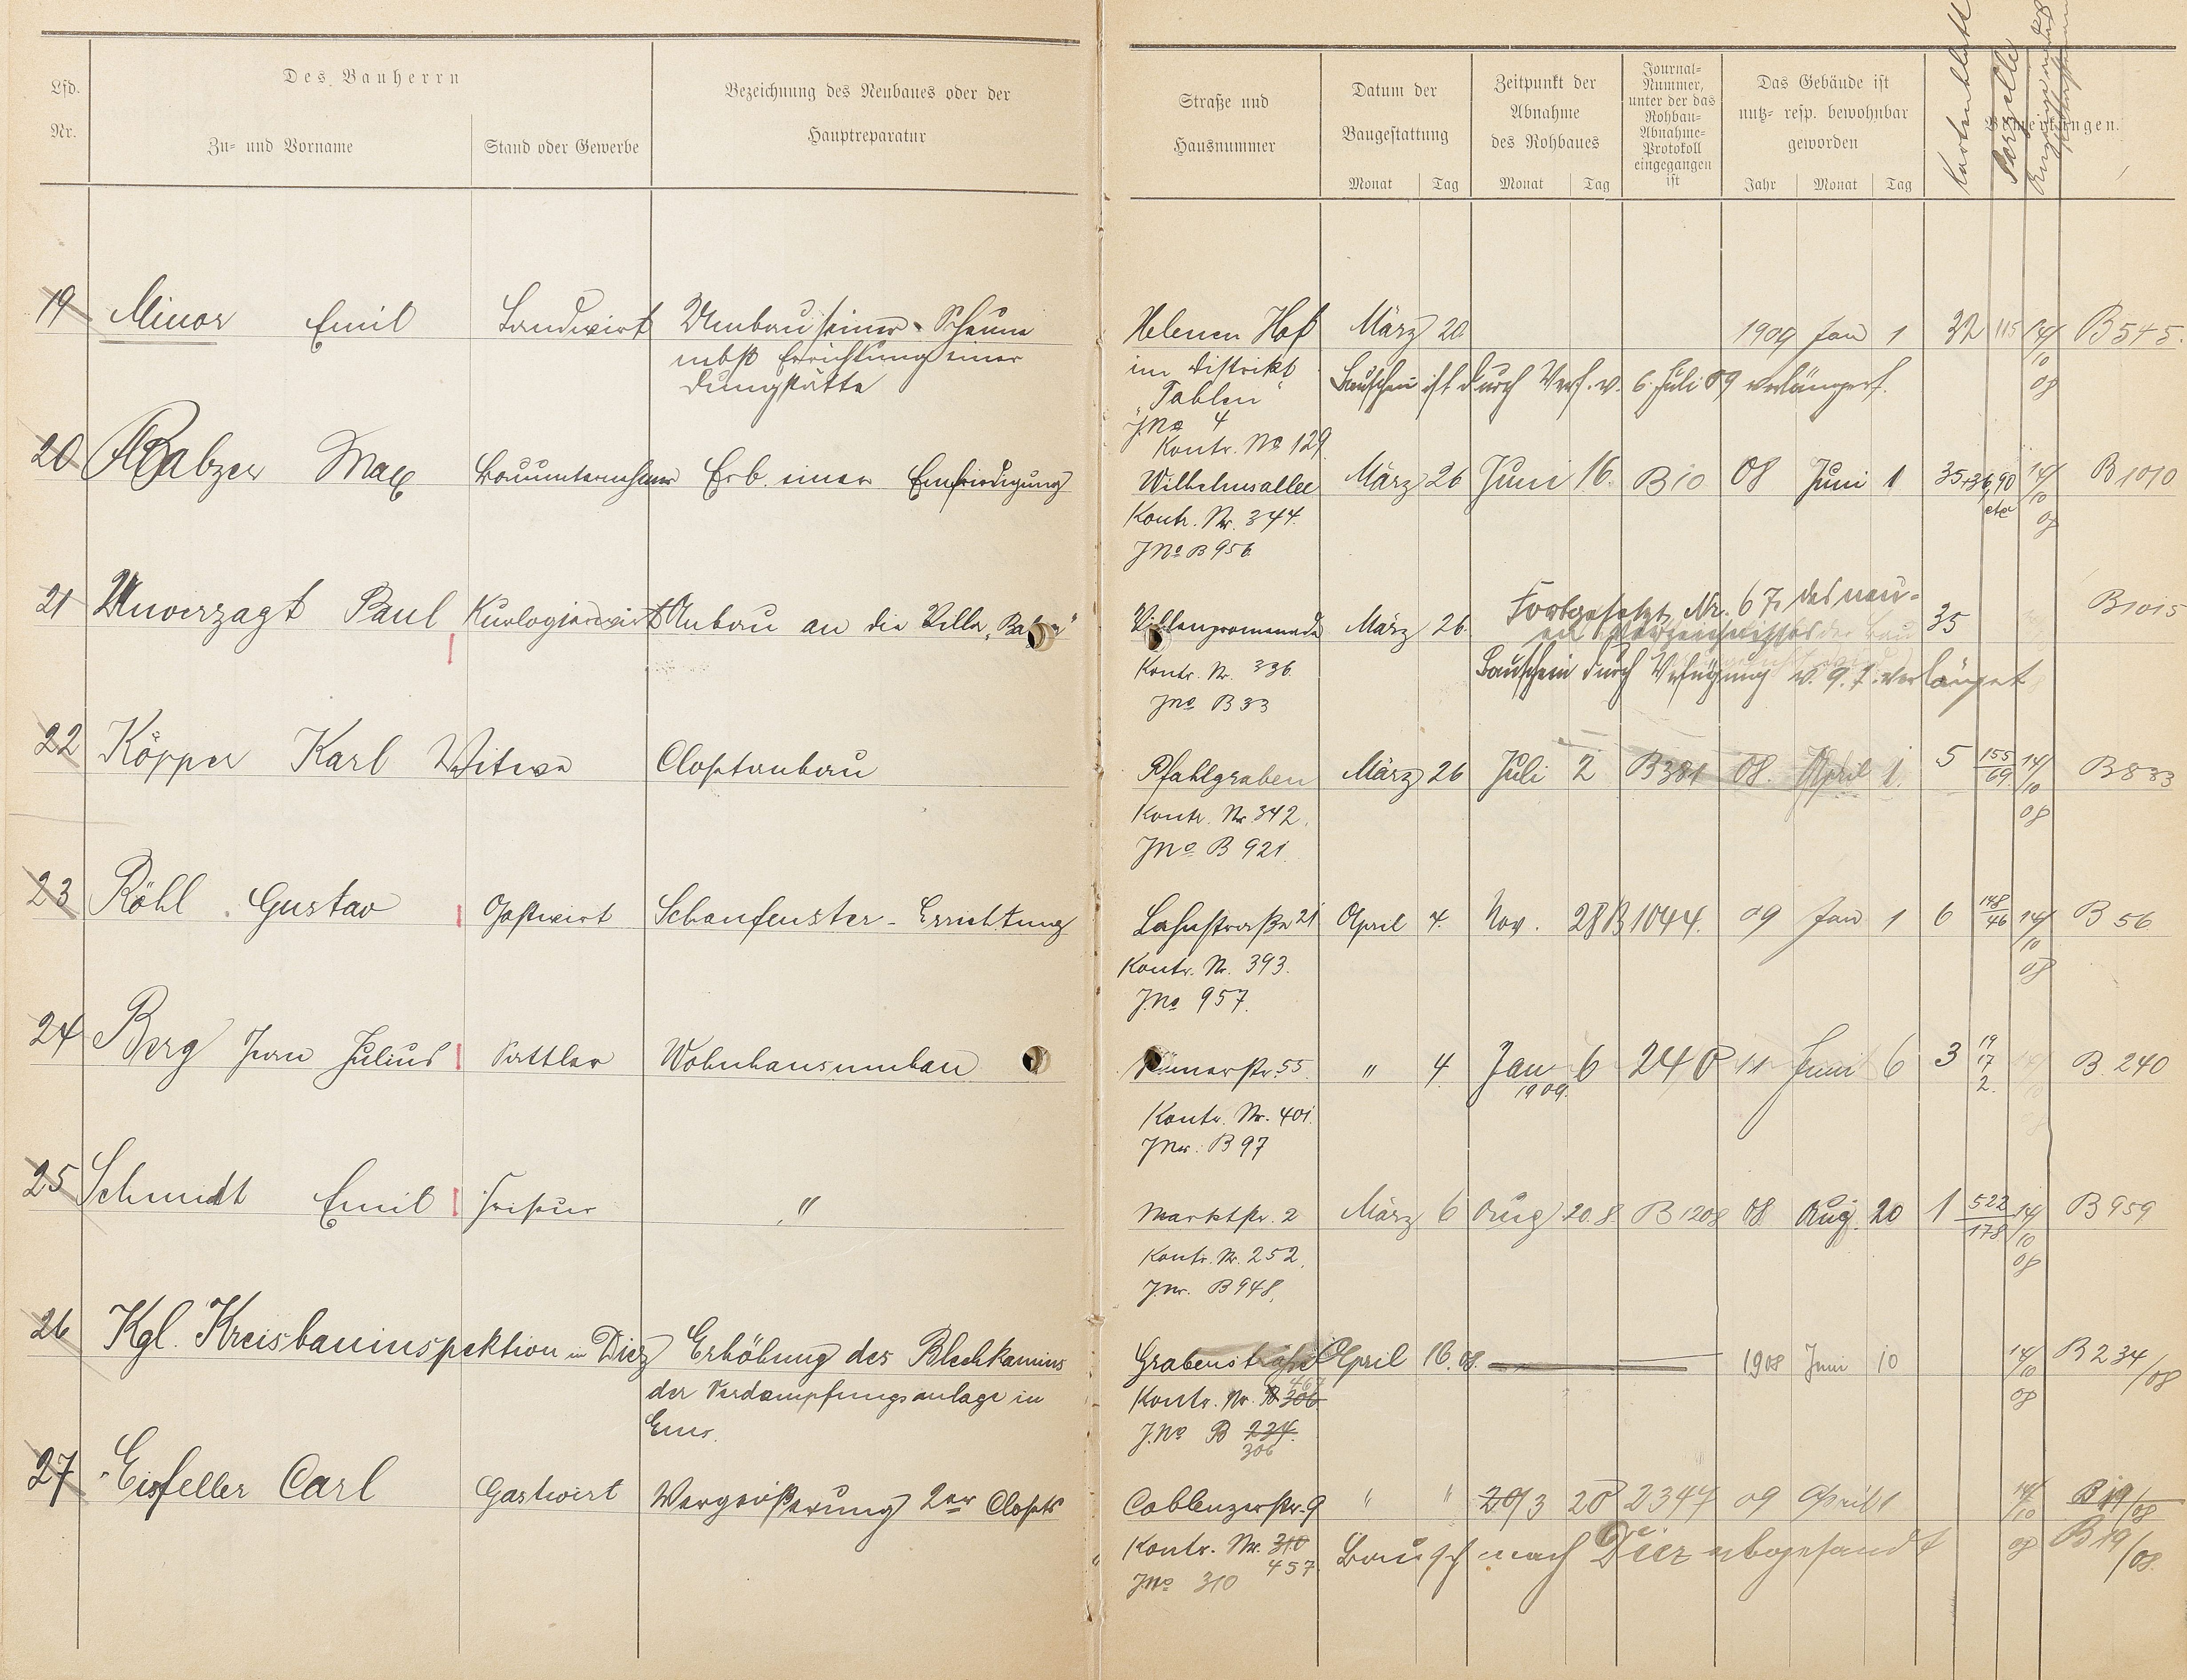 Lfd. Nr.
Des Bauherrn
Zu- und Vorname
Stand oder Gewerbe
Bezeichnung des Neubaues oder der Hauptreparatur
Straße und Hausnummer
Datum der Baugestattung
Monat Tag
Zeitpunkt der Abnahme des Rohbaues
Monat Tag
Journal-Nummer, unter der das Rohbau-Abnahme-Protokoll eingegangen ist
Das Gebäude ist nutz- resp. bewohnbar geworden
Jahr Monat Tag
Bemerkungen.
Kartenblatt
Parzelle
19 Minor Emil Landwirt Umbau seiner Scheune Helenen Hof März 20 1909 Jan 1 32 115 14/10 08 B 545.
nebst Errichtung einer
Dungstätte
im Distrikt
"Tablen"
Bauschein ist durch Verf. v. 6. Juli 09 verlängert.
J.No 4
Kontr. No 129
20 Balzer Max Bauunternehmer Erb. einer Einfriedigung Wilhelmsallee März 26 Juni 16. B 10 08 Juni 1 35+36 90 etc 14/10 08 B 1010
Kontr. Nr. 344.
JNo B 956
21 Unverzagt Paul Kurlogierwirt Anbau an die Villa Villenpromenade März 26. Fortgesetzt Nr. 67. des neu- 35 B 1015
en Verzeichnisses der Bau
Kontr. Nr. 336.
Bauschein durch Verfügung v. 9. 7. verlängert
JNo B 33
22 Köpper Karl Witwe Closetanbau Pfahlgraben März 26 Juli 2 B 381 08. April 1. 5 155/69 14/10 08 B 833
Kontr. Nr. 342.
JNo B 921.
23 Röhl Gustav Gastwirt Schaufenster-Errichtung Lahnstraße 21 April 4. Nov. 28 B 1044. 09 Jan 1 6 148/46 14/10 08 B 56
Kontr. Nr. 393.
JNo 957.
24 Berg Julius Sattler Wohnhausumbau Römerstr. 55. " 4. Jan 6 1909. 24 11 Juni 6 3 19 17 2. 14/10 08 B. 240
Kontr. Nr. 401.
JNr. B 97
25 Schmidt Emil Friseur " Marktstr. 2 März 6 Aug 20. 8. B 1208 08 Aug. 20 1 522/178 14/10 08 B 959
Kontr. Nr. 252.
J.nr. B 948.
26 Kgl. Kreisbauinspektion in Diez Erhöhung des Blechkamins Grabenstraße April 16. 08. 1908 Juni 10 14/10 08 B 234/08
der Verdampfungsanlage in
Ems.
Kontr. Nr. 306 467
J.No B 234.
306
27 Eisfeller Carl Gastwirt Vergrößerung 2er Closets Coblenzerstr. 9 " " 20/3 20 2347 09 April 1 14/10 08 B 19/08
Kontr. Nr. 310 457.
Bausch nach Diez abgesandt
B 19/08.
JNo 310